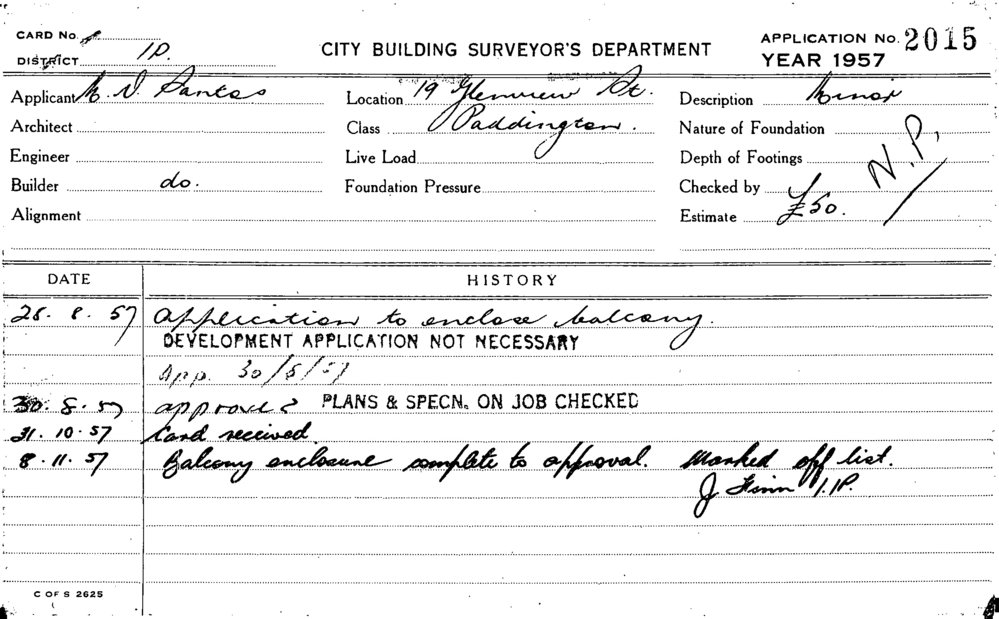 CARD No.
DISTRICT 1P.
CITY BUILDING SURVEYOR'S DEPARTMENT
APPLICATION No. 2015
YEAR 1957
Applicant M. D. Santos
Location 19 Glenview St.
Description Minor
Architect
Class Paddington.
Nature of Foundation
Engineer
Live Load
Depth of Footings
N.P.
Builder do.
Foundation Pressure
Checked by
Alignment
Estimate £50.
DATE HISTORY
28. 8. 57 Application to enclose balcony.
DEVELOPMENT APPLICATION NOT NECESSARY
App. 30/8/57
30. 8. 57 approved PLANS & SPECN. ON JOB CHECKED
31. 10. 57 Card received.
8. 11. 57 Balcony enclosure complete to approval. Marked off list.
J Finn 1.P.
C OF S 2625